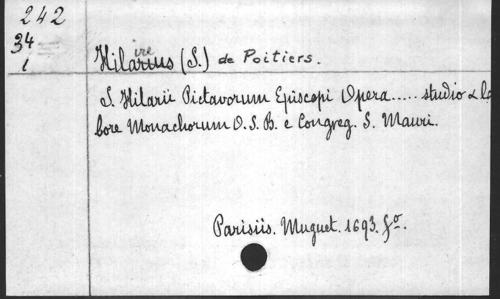 242
34
1
Hilaire (S.) de Poitiers.
S. Hilarii Pictavorum Episcopi Opera..... studio & la
bore Monachorum O.S.B. e Congreg. S. Mauri.
Parisiis. Muguet. 1693. fo.